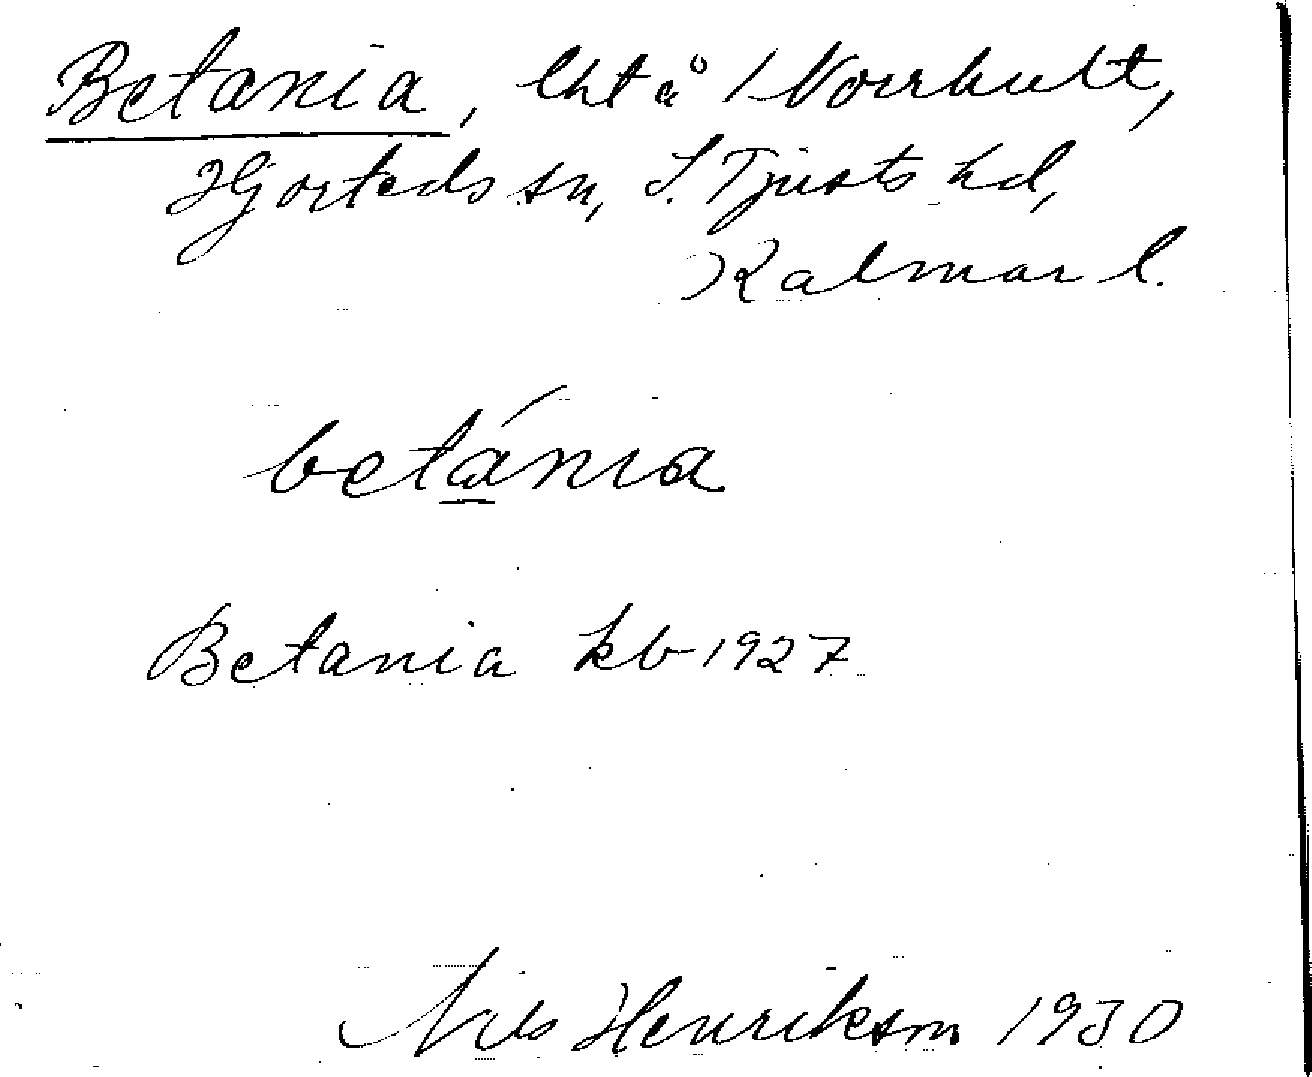 Betania, lht å Norrhult,
Hjorteds sn, S. Tjusts hd,
Kalmar l.
betánia
Betania kb 1927
Nils Henrikson 1930